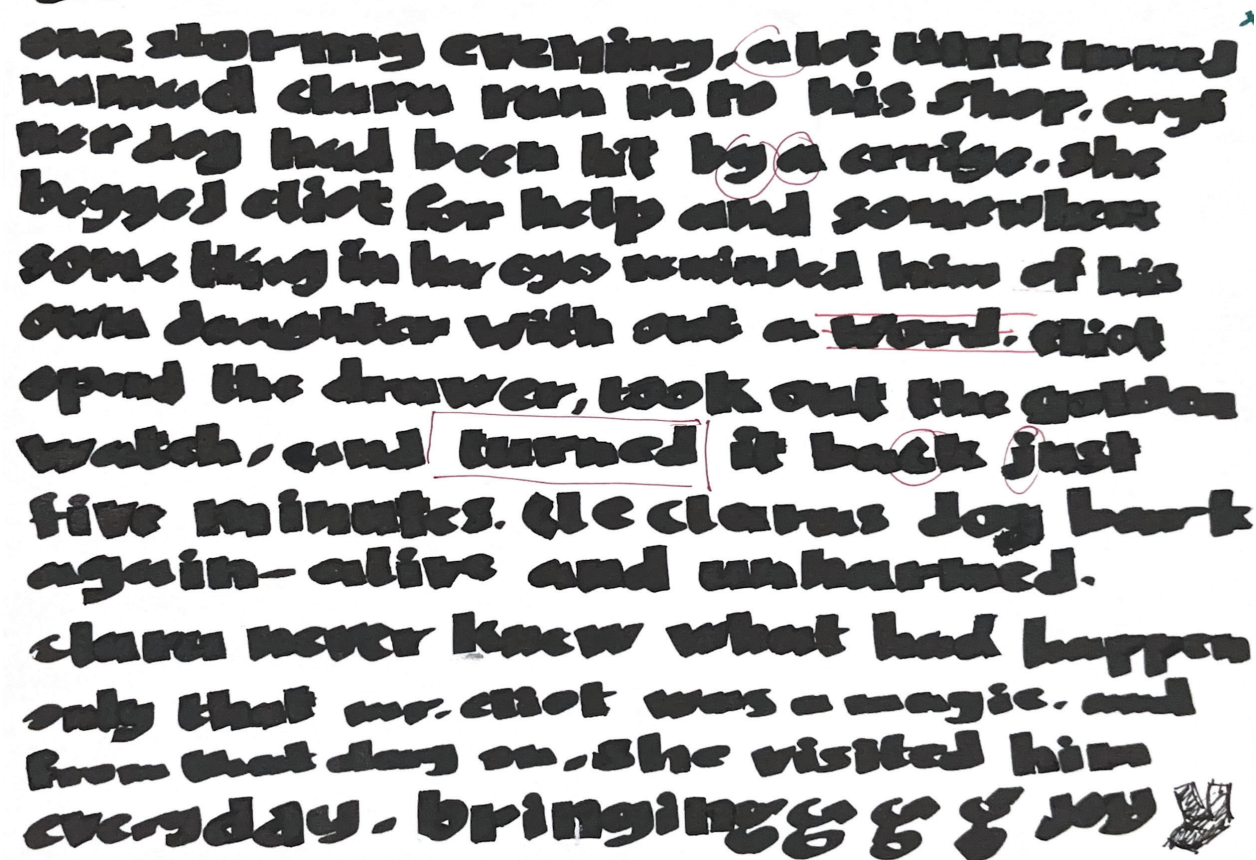 one stormy evening, a lot little
named clara run in to his shop. crys
her dog had been hit by a crrige. she
begged eliot for help and somewhere
some thing in her eyes reminded him of his
own daughter with out a word. eliot
opend the drawer, took out the golden
watch, and turned it back just
five minutes. claras dog bark
again- alive and unharmed.
clara never knew what had happen
only that mr. eliot was a magic. and
from that day on, she visited him
everyday. bringinggg g g joy